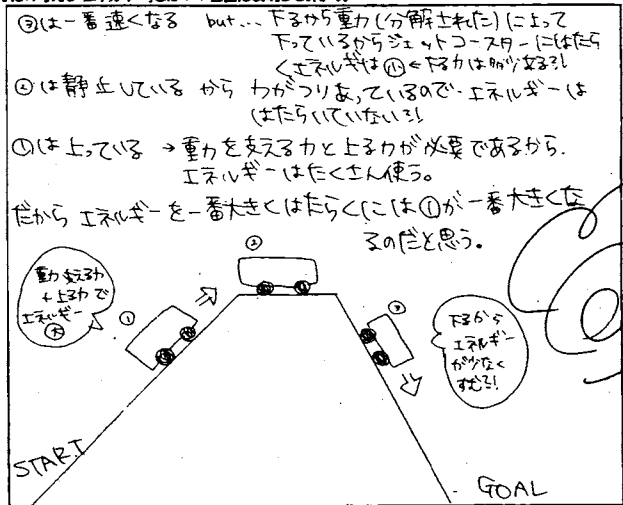 ③は一番速くなる but... 下るから重力(分解された)によって
下っているからジェットコースターにはたら
くエネルギーは㊙小←下る力は多少ある!!
②は静止しているから 力がつりあっているので、エネルギーは
はたらいていない!!
①は上っている → 重力を支える力と上る力が必要であるから、
エネルギーはたくさん使う。
だから エネルギーを一番大きくはたらくには①が一番大きくな
るのだと思う。
重力支える力
+上る力で
エネルギー
大
①
②
③
下るから
エネルギー
が少なく
すむ!!
START
GOAL